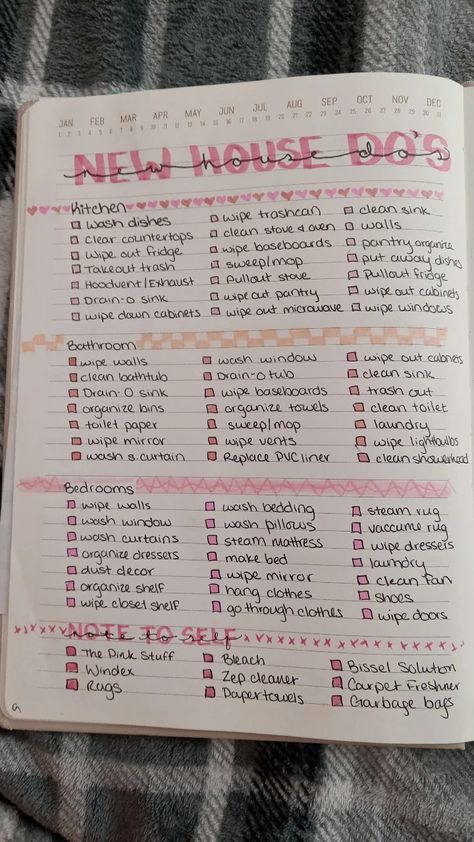 JAN FEB MAR APR MAY JUN JUL AUG SEP OCT NOV DEC
1 2 3 4 5 6 7 8 9 10 11 12 13 14 15 16 17 18 19 20 21 22 23 24 25 26 27 28 29 30 31
NEW HOUSE DO'S
new house do's
Kitchen
wash dishes wipe trashcan clean sink
Clear countertops clean stove & oven walls
Wipe out fridge wipe baseboards pantry organize
Takeout trash sweep/mop put away dishes
Hoodvent/Exhaust Pullout stove Pullout fridge
Drain-o sink wipe out pantry wipe out cabinets
wipe down cabinets wipe out microwave wipe windows
Bathroom
wipe walls wash window wipe out cabnets
clean bathtub Drain-o tub clean sink
Drain-O sink wipe baseboards trash out
organize bins organize towels clean toilet
toilet paper sweep/mop laundry
wipe mirror wipe vents wipe lightbulbs
wash s.curtain Replace PVC liner clean showerhead
Bedrooms
wipe walls wash bedding steam rug
wash window wash pillows vaccume rug
wash curtains steam mattress wipe dressers
organize dressers make bed laundry
dust decor wipe mirror clean fan
organize shelf hang clothes shoes
wipe closet shelf go through clothes wipe doors
NOTE TO SELF
The Pink Stuff Bleach Bissel Solution
Windex Zep cleaner Carpet Freshner
Rugs Papertowels Garbage bags